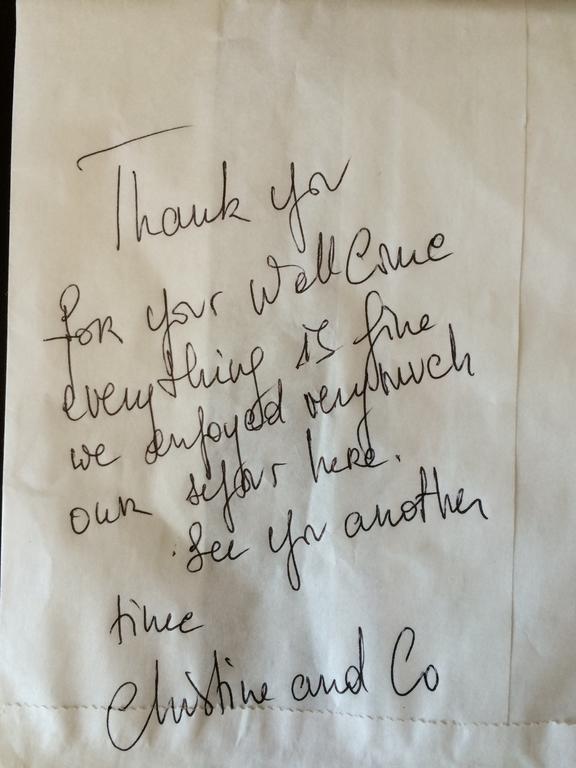 Thank you
for your Wellcome
everything is fine
we enjoyed very much
our sejour here.
See you another
time
Christine and Co